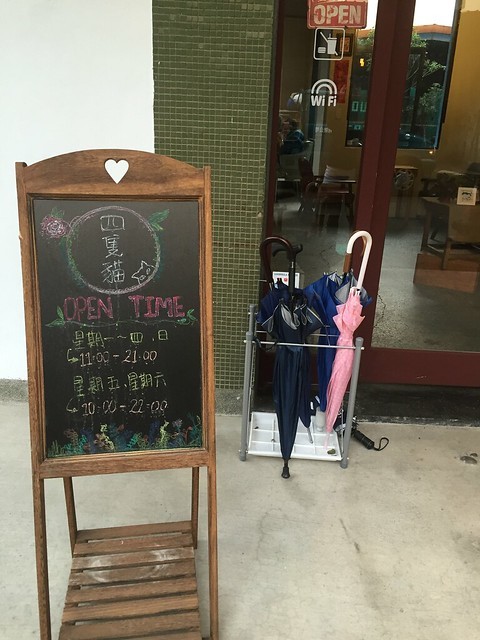 OPEN
WiFi
四隻貓
OPEN TIME
星期一~四、日
11:00 - 21:00
星期五、星期六
10:00 - 22:00